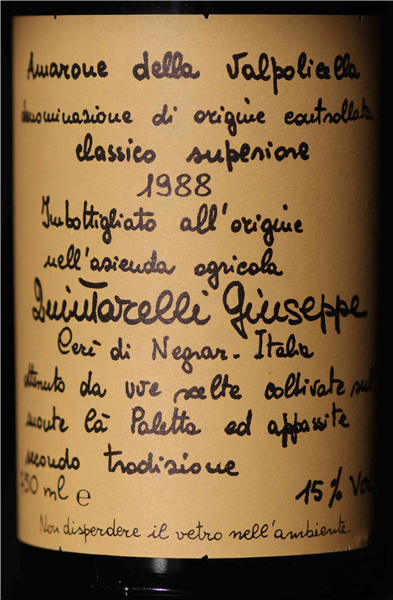 Amarone della Valpolicella
denominazione di origine controllata
classico superiore
1988
Imbottigliato all'origine
nell'azienda agricola
Quintarelli Giuseppe
Cerè di Negrar - Italia
ottenuto da uve scelte coltivate sul
monte Cà Paletta ed appassite
secondo tradizione
750 ml e 15% Vol.
Non disperdere il vetro nell'ambiente.